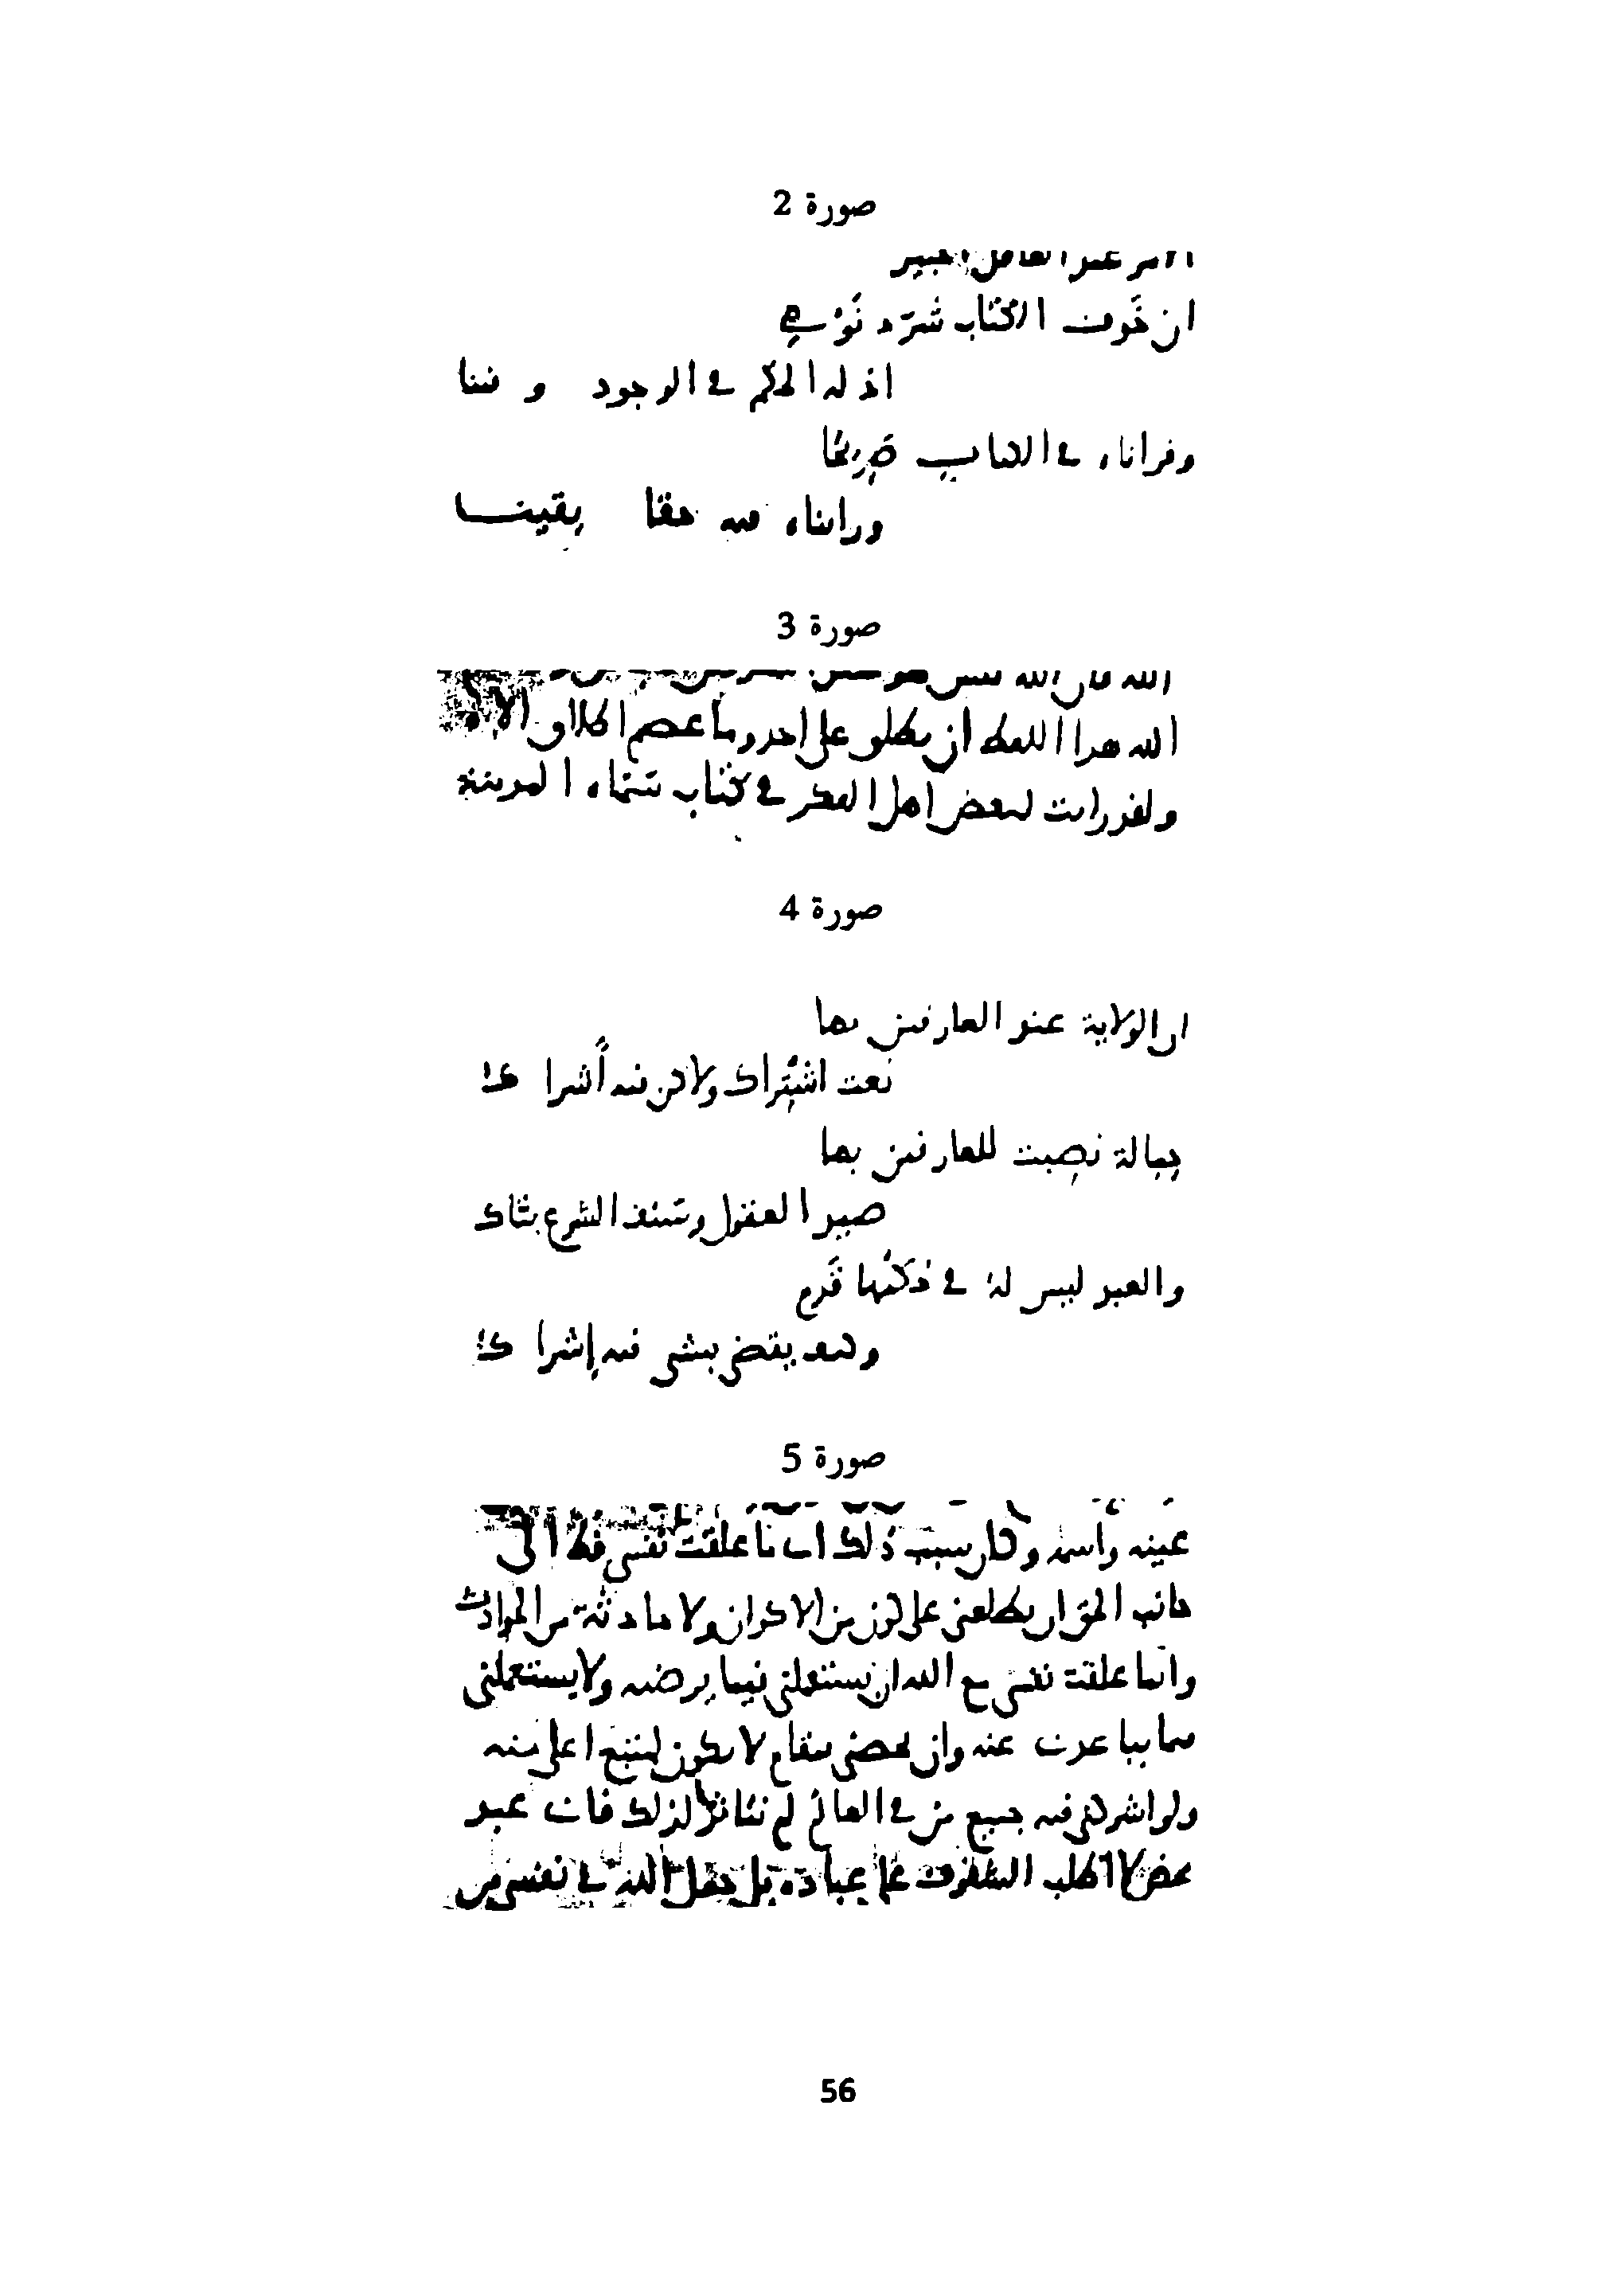 صورة 2
ان خوف الكتاب شرّد نومي
اذ له الحكم في الوجود وفينا
وقراناه في الكتاب صريحًا
وراىناه فىه حقا يقينـــا
صورة 3
الله هدا اللفط ان ىطلق على احد وما عصم اطلاق الا
ولقد راىت لىعض اهل الفكر في كتاب سَمّاه المدينة
صورة 4
ان الولاية عند العارفىن ىها
نعت اشتراك ولاكن فىه أشراك
حبالة نصبت للعارفىن بها
صيد العقول وسَيف الشرع بتّاك
والعبد ليس لهُ في حُكمها قَدم
وكىف يقضى بشى فىه إشراكُ
صورة 5
عينه واسمه وكان سبب ذلك اى ما علقت نفسى قط الى
جانب الحق ان ىطلعنى على كون من الاكوان ولا حادثة من الحوادث
وانما علقت نفسى مع الله ان يستعملنى فيما يرضىه ولا يستعملنى
ىما يباعدنى عنه وان ىخصنى ىمقام لا ىكون لمتبع اعلى منه
ولو اشركنى فىه جميع من في العالم لم نتاثر لذلك فانى عبد
محض لا اطلب التفوق على عباده بل جعل الله في نفسى من
56